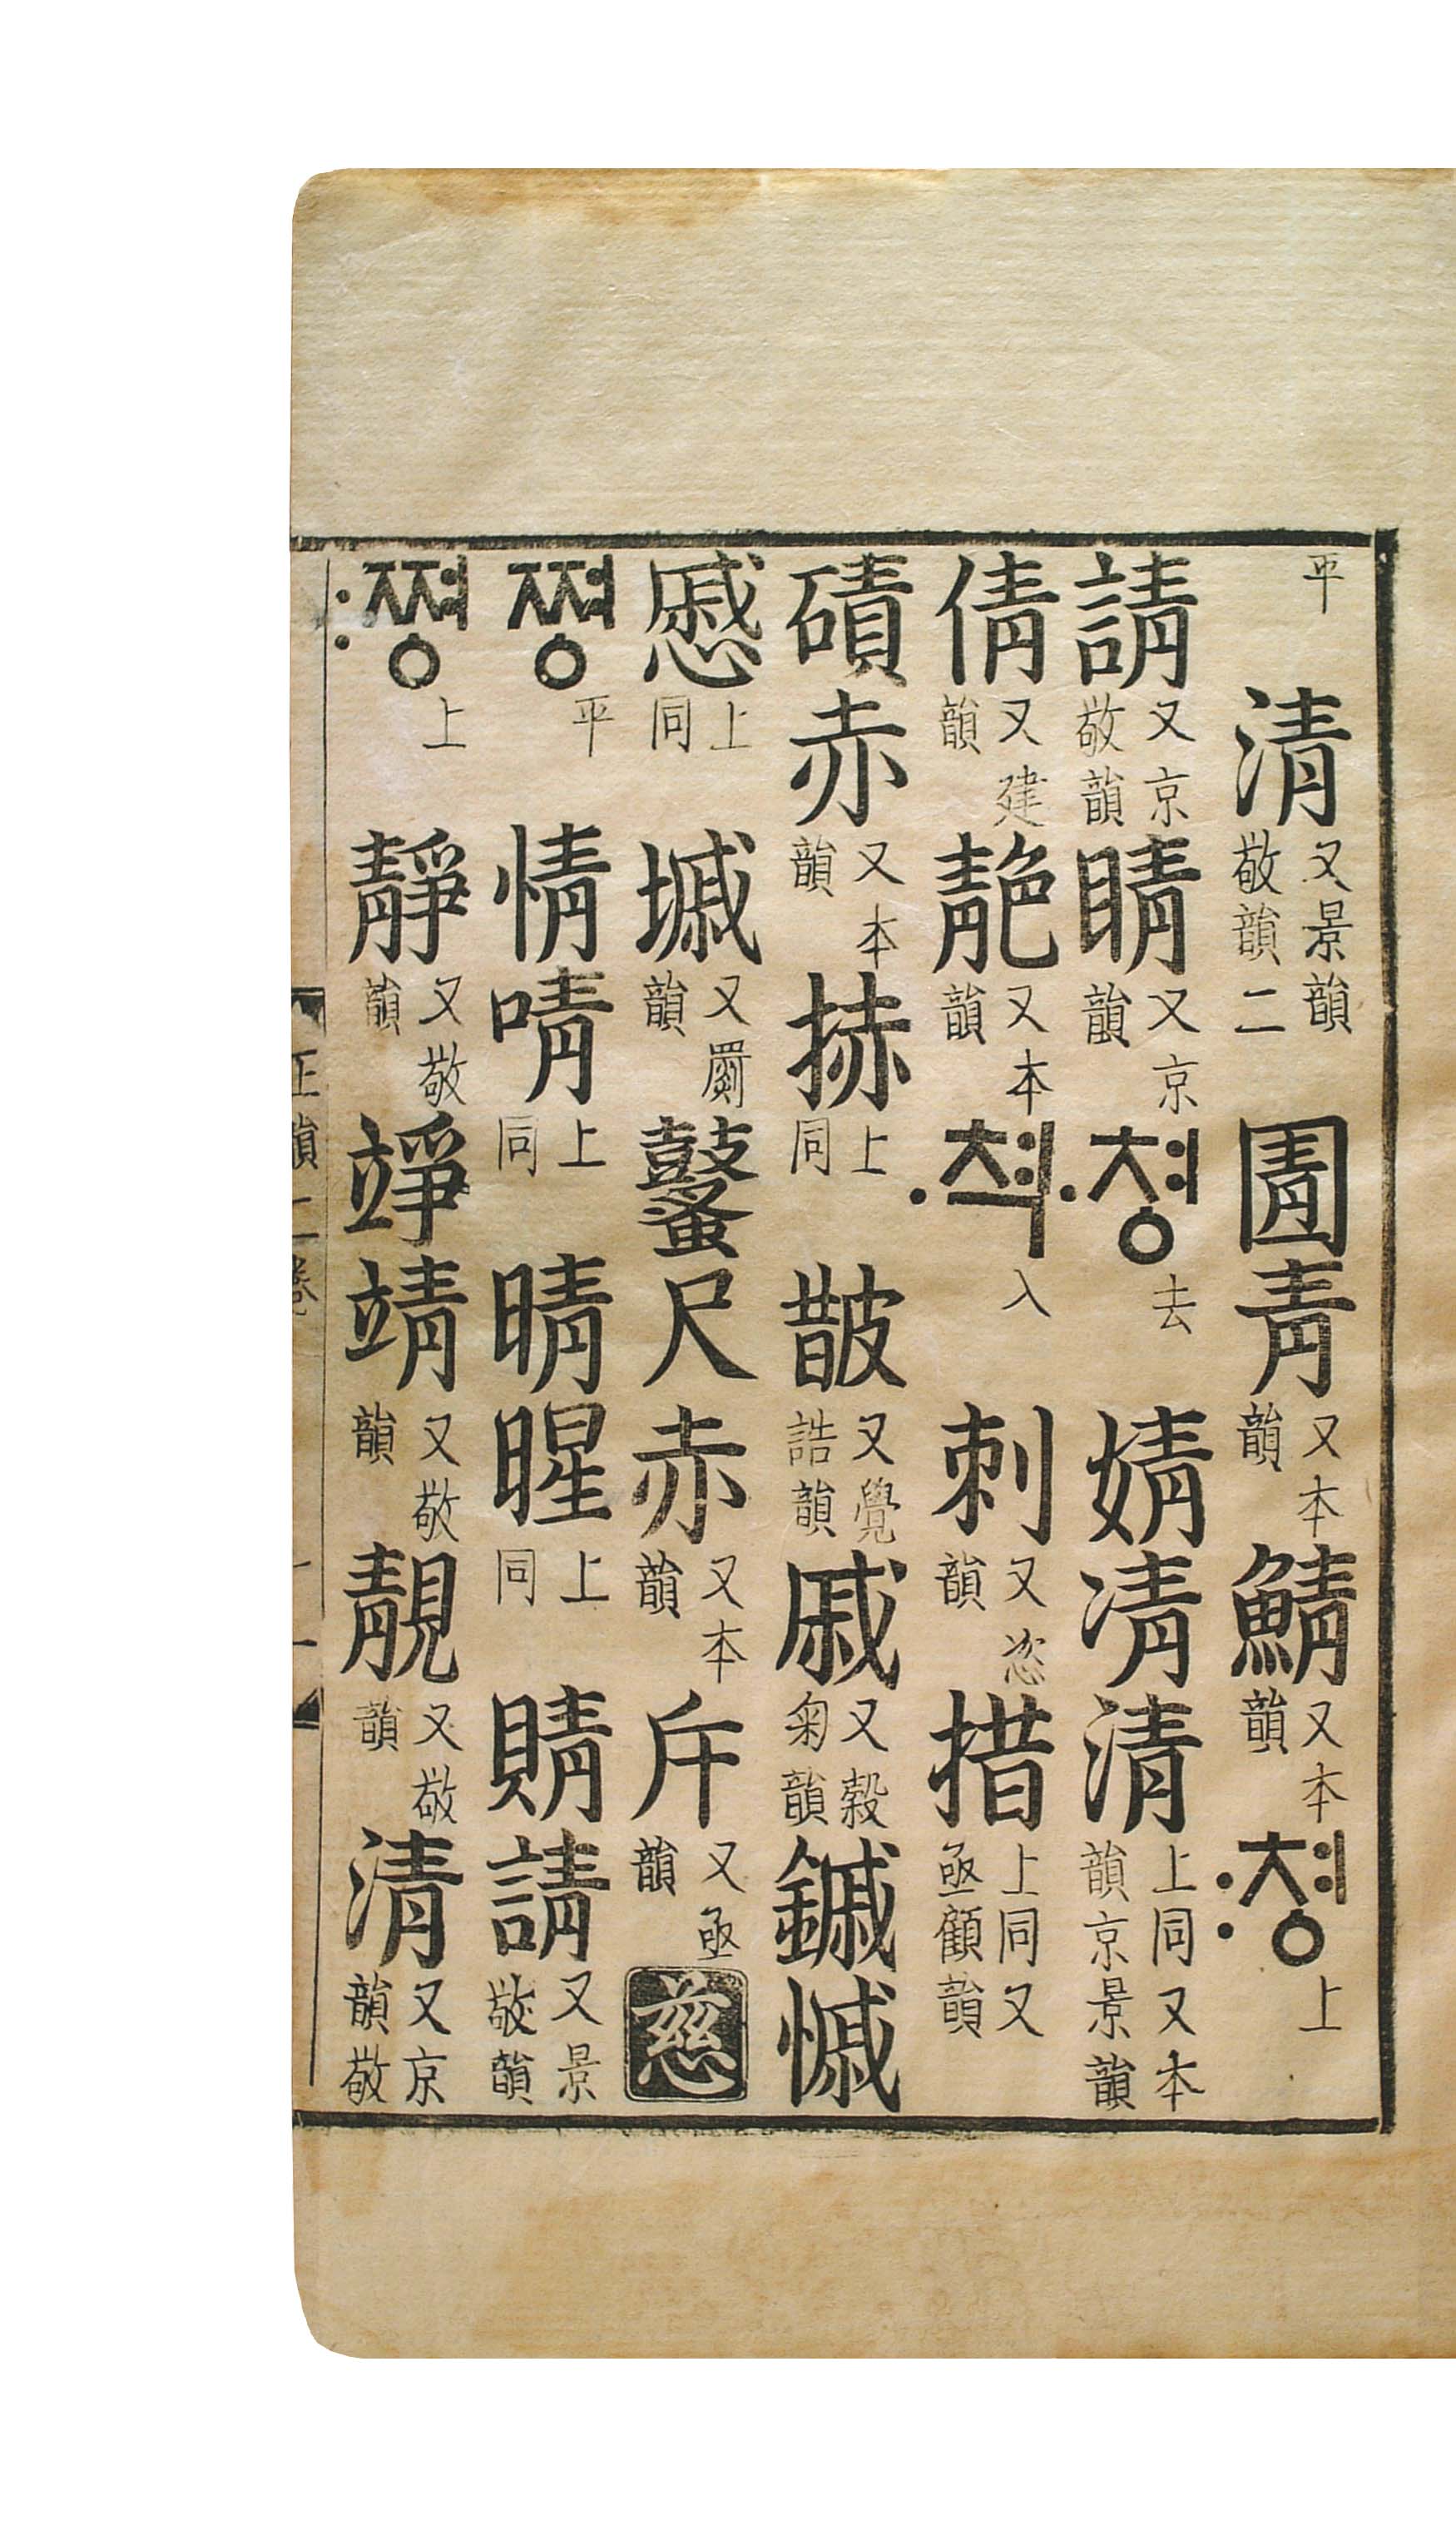 平 清又景韻敬韻二 圊青又本韻 鯖又本韻 〯청上
請又京敬韻 睛又京韻 〮청去 婧凊清上同又本韻京景韻
倩又建韻 靘又本韻 〮척入 刺又恣韻 措上同又亟顧韻
磧赤又本韻 捇上同 皵又覺誥韻 戚又穀菊韻 鏚慽
慼上同 墄又罽韻 鼜尺赤又本韻 斥又亟韻 慈
쪙平 情啨上同 晴暒上同 賵請又景敬韻
〯쪙上 靜又敬韻 竫靖又敬韻 靚又敬韻 清又京韻敬